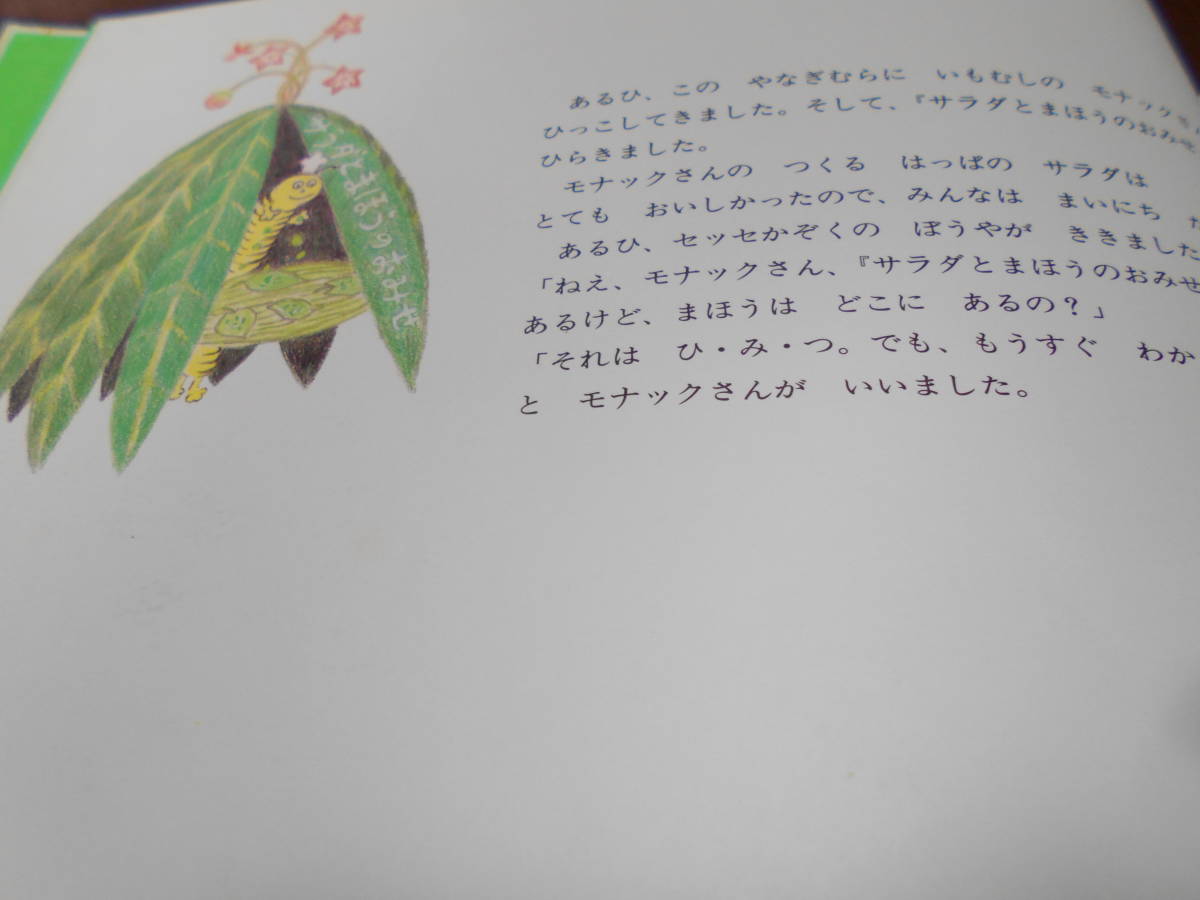 サラダとまほうのおみせ
あるひ、この　やなぎむらに　いもむしの　モナックさん
ひっこしてきました。そして、『サラダとまほうのおみせ
ひらきました。
モナックさんの　つくる　はっぱの　サラダは
とても　おいしかったので、みんなは　まいにち
あるひ、セッセかぞくの　ぼうやが　ききました
「ねえ、モナックさん、『サラダとまほうのおみせ
あるけど、まほうは　どこに　あるの？」
「それは　ひ・み・つ。でも、もうすぐ　わか
と　モナックさんが　いいました。